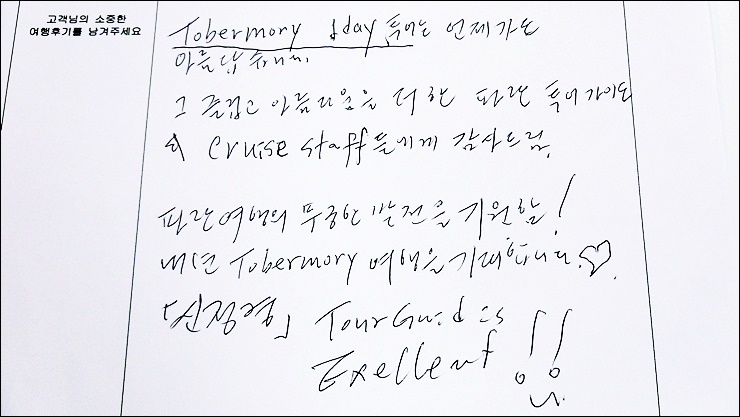 고객님의 소중한
여행후기를 남겨주세요
Tobermory 1day 투어는 언제가도
아름답습니다
그 즐겁고 아름다움을 더한 파란 투어가이드
와 Cruise staff들에게 감사드림.
파란여행의 무궁한 발전을 기원함!
내년 Tobermory 여행을 기대합니다. ♡
「신정렬」 Tour Guid is
Exellent !!